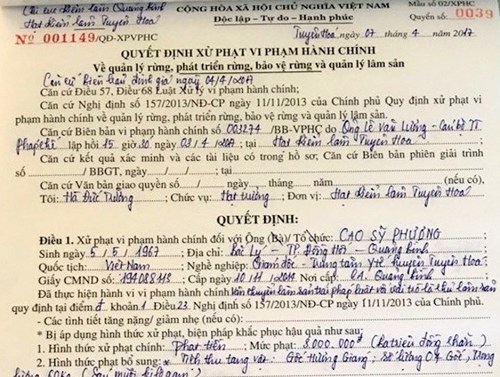 Chi cục Kiểm lâm Quảng Bình
CỘNG HÒA XÃ HỘI CHỦ NGHĨA VIỆT NAM
Mẫu số: 02/XPHC
Hạt Kiểm lâm Tuyên Hoá
Độc lập - Tự do - Hạnh phúc
Quyển số: 0039
Nº 001149/QĐ-XPVPHC
Tuyên Hoá, ngày 07 tháng 4 năm 2017
QUYẾT ĐỊNH XỬ PHẠT VI PHẠM HÀNH CHÍNH
Về quản lý rừng, phát triển rừng, bảo vệ rừng và quản lý lâm sản
Căn cứ biên bản định giá ngày 04/4/2017
Căn cứ Điều 57, Điều 68 Luật Xử lý vi phạm hành chính;
Căn cứ Nghị định số 157/2013/NĐ-CP ngày 11/11/2013 của Chính phủ Quy định xử phạt vi
phạm hành chính về quản lý rừng, phát triển rừng, bảo vệ rừng và quản lý lâm sản;
Căn cứ Biên bản vi phạm hành chính số 003274 /BB-VPHC do Ông Lê Văn Lương - Cán bộ TT
Pháp chế lập hồi 15 giờ 30 ngày 03/4/2017, tại Hạt Kiểm lâm Tuyên Hoá;
Căn cứ kết quả xác minh và các tài liệu có trong hồ sơ; Căn cứ Biên bản phiên giải trình
số / /BBGT, ngày / / tại /
Căn cứ Văn bản giao quyền số / ngày tháng năm (nếu có),
Tôi: Hà Đức Tường ; Chức vụ: Hạt trưởng ; Đơn vị: Hạt Kiểm lâm Tuyên Hoá
QUYẾT ĐỊNH:
Điều 1. Xử phạt vi phạm hành chính đối với Ông (Bà)/ Tổ chức: CAO SỸ PHƯƠNG
Sinh ngày 5 / 5 / 1967 Lộc Ninh - TP Đồng Hới - Quảng Bình
Quốc tịch: Việt Nam ; Nghề nghiệp: Giám đốc - Trung tâm Y tế Huyện Tuyên Hoá
Giấy CMND số: Cấp ngày 10/11/2014 Nơi cấp: CA. Quảng Bình
Đã thực hiện hành vi vi phạm hành chính: Vận chuyển lâm sản trái pháp luật với vai trò là chủ lâm sản
quy định tại điểm khoản 1 Điều 23 Nghị định số 157/2013/NĐ-CP ngày 11/11/2013 của Chính phủ.
- Các tình tiết tăng nặng/ giảm nhẹ (nếu có):
* Bị áp dụng hình thức xử phạt, biện pháp khắc phục hậu quả như sau:
1. Hình thức xử phạt chính: Phạt tiền ; Mức phạt: 3.000.000đ (ba triệu đồng chẵn)
2. Hình thức phạt bổ sung: Tịch thu tang vật: Gốc Hương Giáng; số lượng 04 Gốc, Trọng